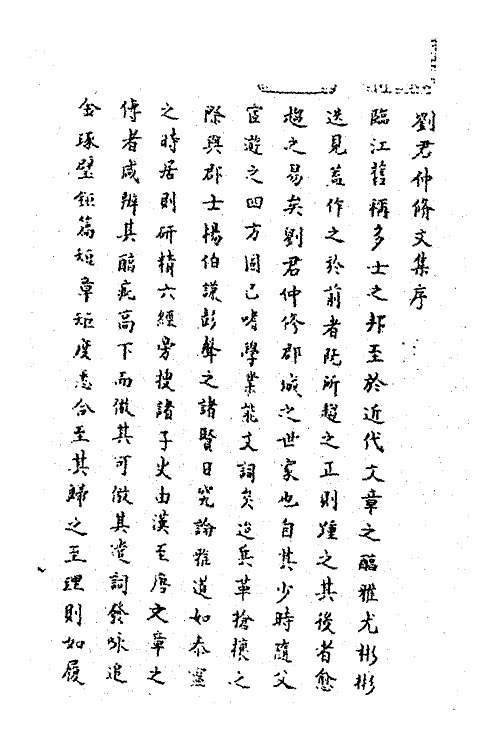 劉君仲脩文集序
臨江舊稱多士之邦至於近代文章之醇雅尤彬彬
迭見葢作之於前者既所趨之正則踵之其後者愈
趨之易矣劉君仲修郡城之世家也自其少時隨父
宦遊之四方固已嗜學業能文詞矣迨兵革搶攘之
際與郡士楊伯謙彭聲之諸賢日究論雅道如恭靈
之時居則研精六經旁搜諸子史由漢至唐文章之
傳者咸辨其醇疵高下而倣其可倣其遣詞發咏追
金琢璧鉅篇短章矩度悉合至其歸之至理則如履